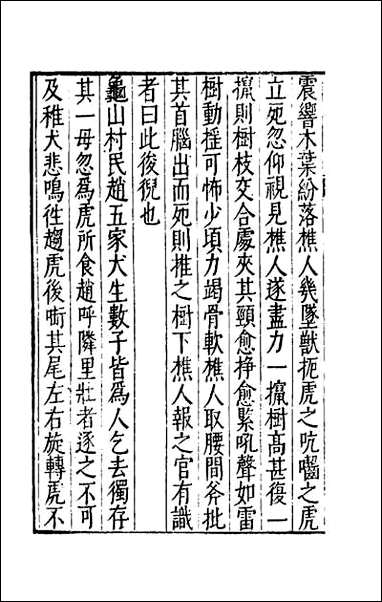 震響木葉紛落樵人幾墜獸扼虎之吭嚙之虎
立死忽仰視見樵人遂盡力一攛樹高甚復一
攛則樹枝交合處夾其頸愈掙愈緊吼聲如雷
樹動搖可怖少頃力竭骨軟樵人取腰間斧批
其首腦出而死則推之樹下樵人報之官有識
者曰此後猊也
龜山村民趙五家犬生數子皆為人乞去獨存
其一母忽為虎所食趙呼隣里壯者逐之不可
及稚犬悲鳴徃趨虎後嚙其尾左右旋轉虎不